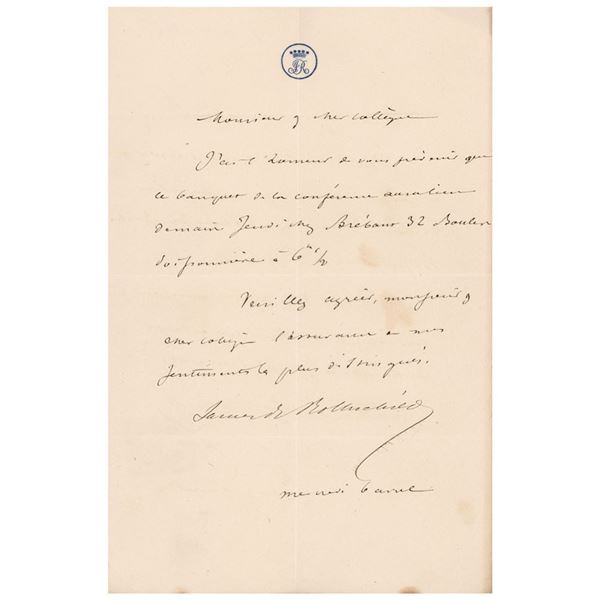 JR
Monsieur & cher collègue
J'ai l'honneur de vous prévenir que
le banquet de la conférence aura lieu
demain Jeudi chez Brébant 32 Boulev
poissonnière à 6h 1/2
Veuillez agréer, monsieur &
cher collègue l'assurance de mes
sentiments les plus distingués.
James de Rothschild
mercredi 6 avril